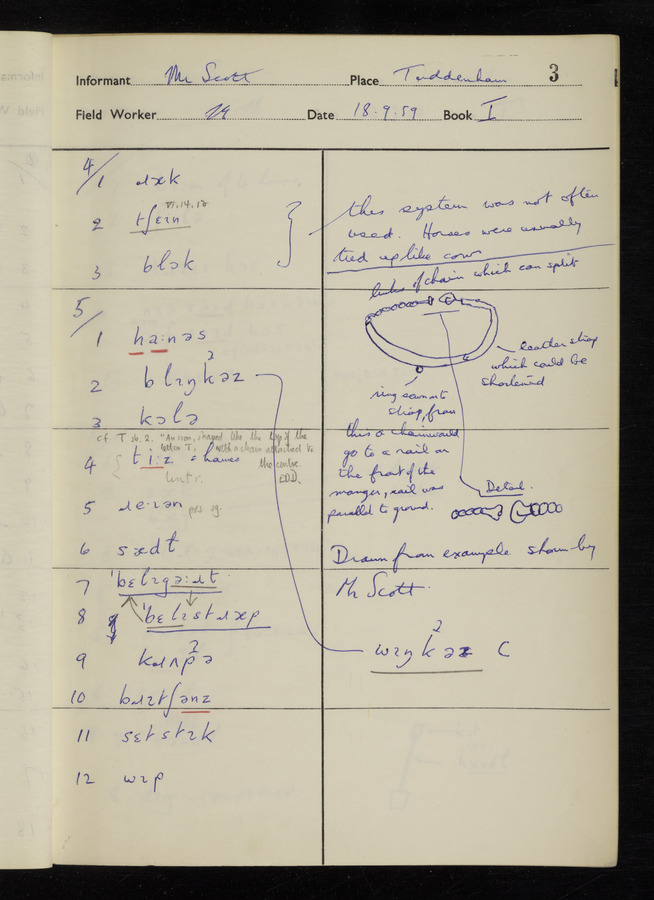 Informant Mr Scott Place Tuddenham 3
Field Worker Date 18.9.59 Book I
4/
1 ɹæk
2 tʃɛɪn VI.14.12
3 blɔk
this system was not often
used. Horses were usually
tied up like cows
5/
1 ha:nəs
2 blɪŋkʔəz
3 kɔlə
links of chain which can split
leather strap
which could be
shortened
ring sewn into
strap, from
this a chain would
go to a rail on
the front of the
manger, rail was
parallel to ground.
Detail.
cf. T sb. 2. "An iron, shaped like the top of the
letter T, with a chain attached to
the centre.
EDD.
4 ti:z = hames
5 ɹe·ɪən pos sg.
6 sædɫ
Drawn from example shown by
Mr Scott.
7 ˈbɛlɪgə:ɹt
8 ˈbɛlɪstɹæp
9 kɹʌpʔə
wɪŋkʔəz C
10 bɹɪtʃənz
11 sɛtstɪk
12 wɪp